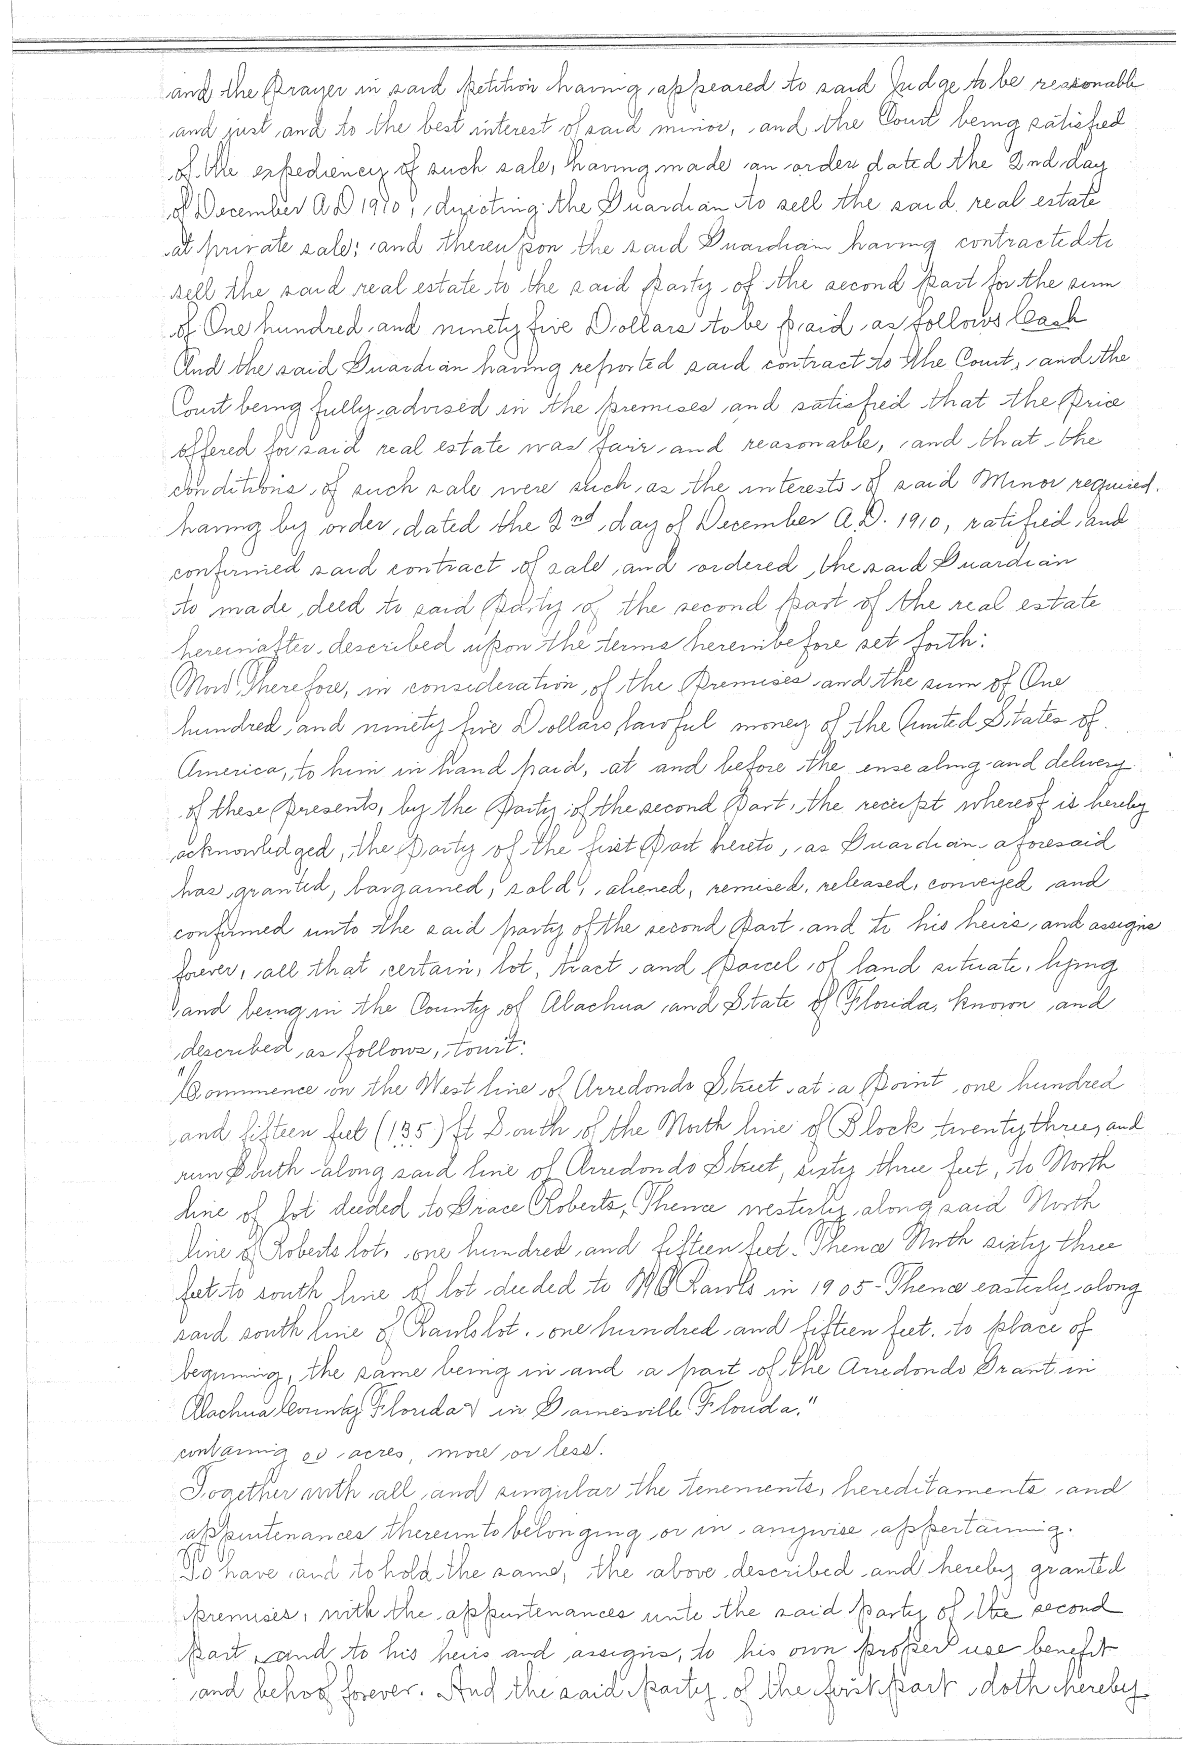 and the Prayer in said petition having appeared to said Judge to be reasonable
and just and to the best interest of said minor, and the Court being satisfied
of the expediency of such sale, having made an order dated the 2nd day
of December A.D 1910, directing the Guardian to sell the said real estate
at private sale; and thereupon the said Guardian having contracted to
sell the said real estate to the said party of the second part for the sum
of One hundred and ninety five Dollars to be paid as follows Cash
And the said Guardian having reported said contract to the Court, and the
Court being fully advised in the premises and satisfied that the Price
offered for said real estate was fair and reasonable, and that the
conditions of such sale were such as the interests of said Minor required.
having by order dated the 2nd day of December A.D. 1910, ratified and
confirmed said contract of sale and ordered the said Guardian
to made deed to said Party of the second part of the real estate
hereinafter described upon the terms hereinbefore set forth:
Now Therefore, in consideration of the Premises and the sum of One
hundred and ninety five Dollars lawful money of the United States of
America, to him in hand paid, at and before the ensealing and delivery
of these Presents, by the Party of the second Part, the receipt whereof is hereby
acknowledged, the Party of the first Part hereto, as Guardian aforesaid
has granted, bargained, sold, aliened, remised, released, conveyed and
confirmed unto the said party of the second Part and to his heirs, and assigns
forever, all that certain, lot, tract and Parcel of land situate, lying
and being in the County of Alachua and State of Florida, known and
described as follows, towit:
"Commence on the West line of Arredondo Street at a Point one hundred
and fifteen feet (135) ft South of the North line of Block twenty three, and
run South along said line of Arredondo Street, sixty three feet, to North
line of lot deeded to Grace Roberts, Thence westerly along said North
line of Roberts lot, one hundred and fifteen feet. Thence North sixty three
feet to south line of lot deeded to W C Rawls in 1905 - Thence easterly along
said south line of Rawls lot, one hundred and fifteen feet. to place of
beginning, the same being in and a part of the Arredondo Grant in
Alachua County Florida & in Gainesville Florida."
containing oo acres, more or less.
Together with all and singular the tenements, hereditaments and
appurtenances thereunto belonging or in anywise appertaining.
To have and to hold the same, the above described and hereby granted
premises, with the appurtenances unto the said party of the second
part and to his heirs and assigns, to his own proper use benefit
and behoof forever. And the said party of the first part doth hereby